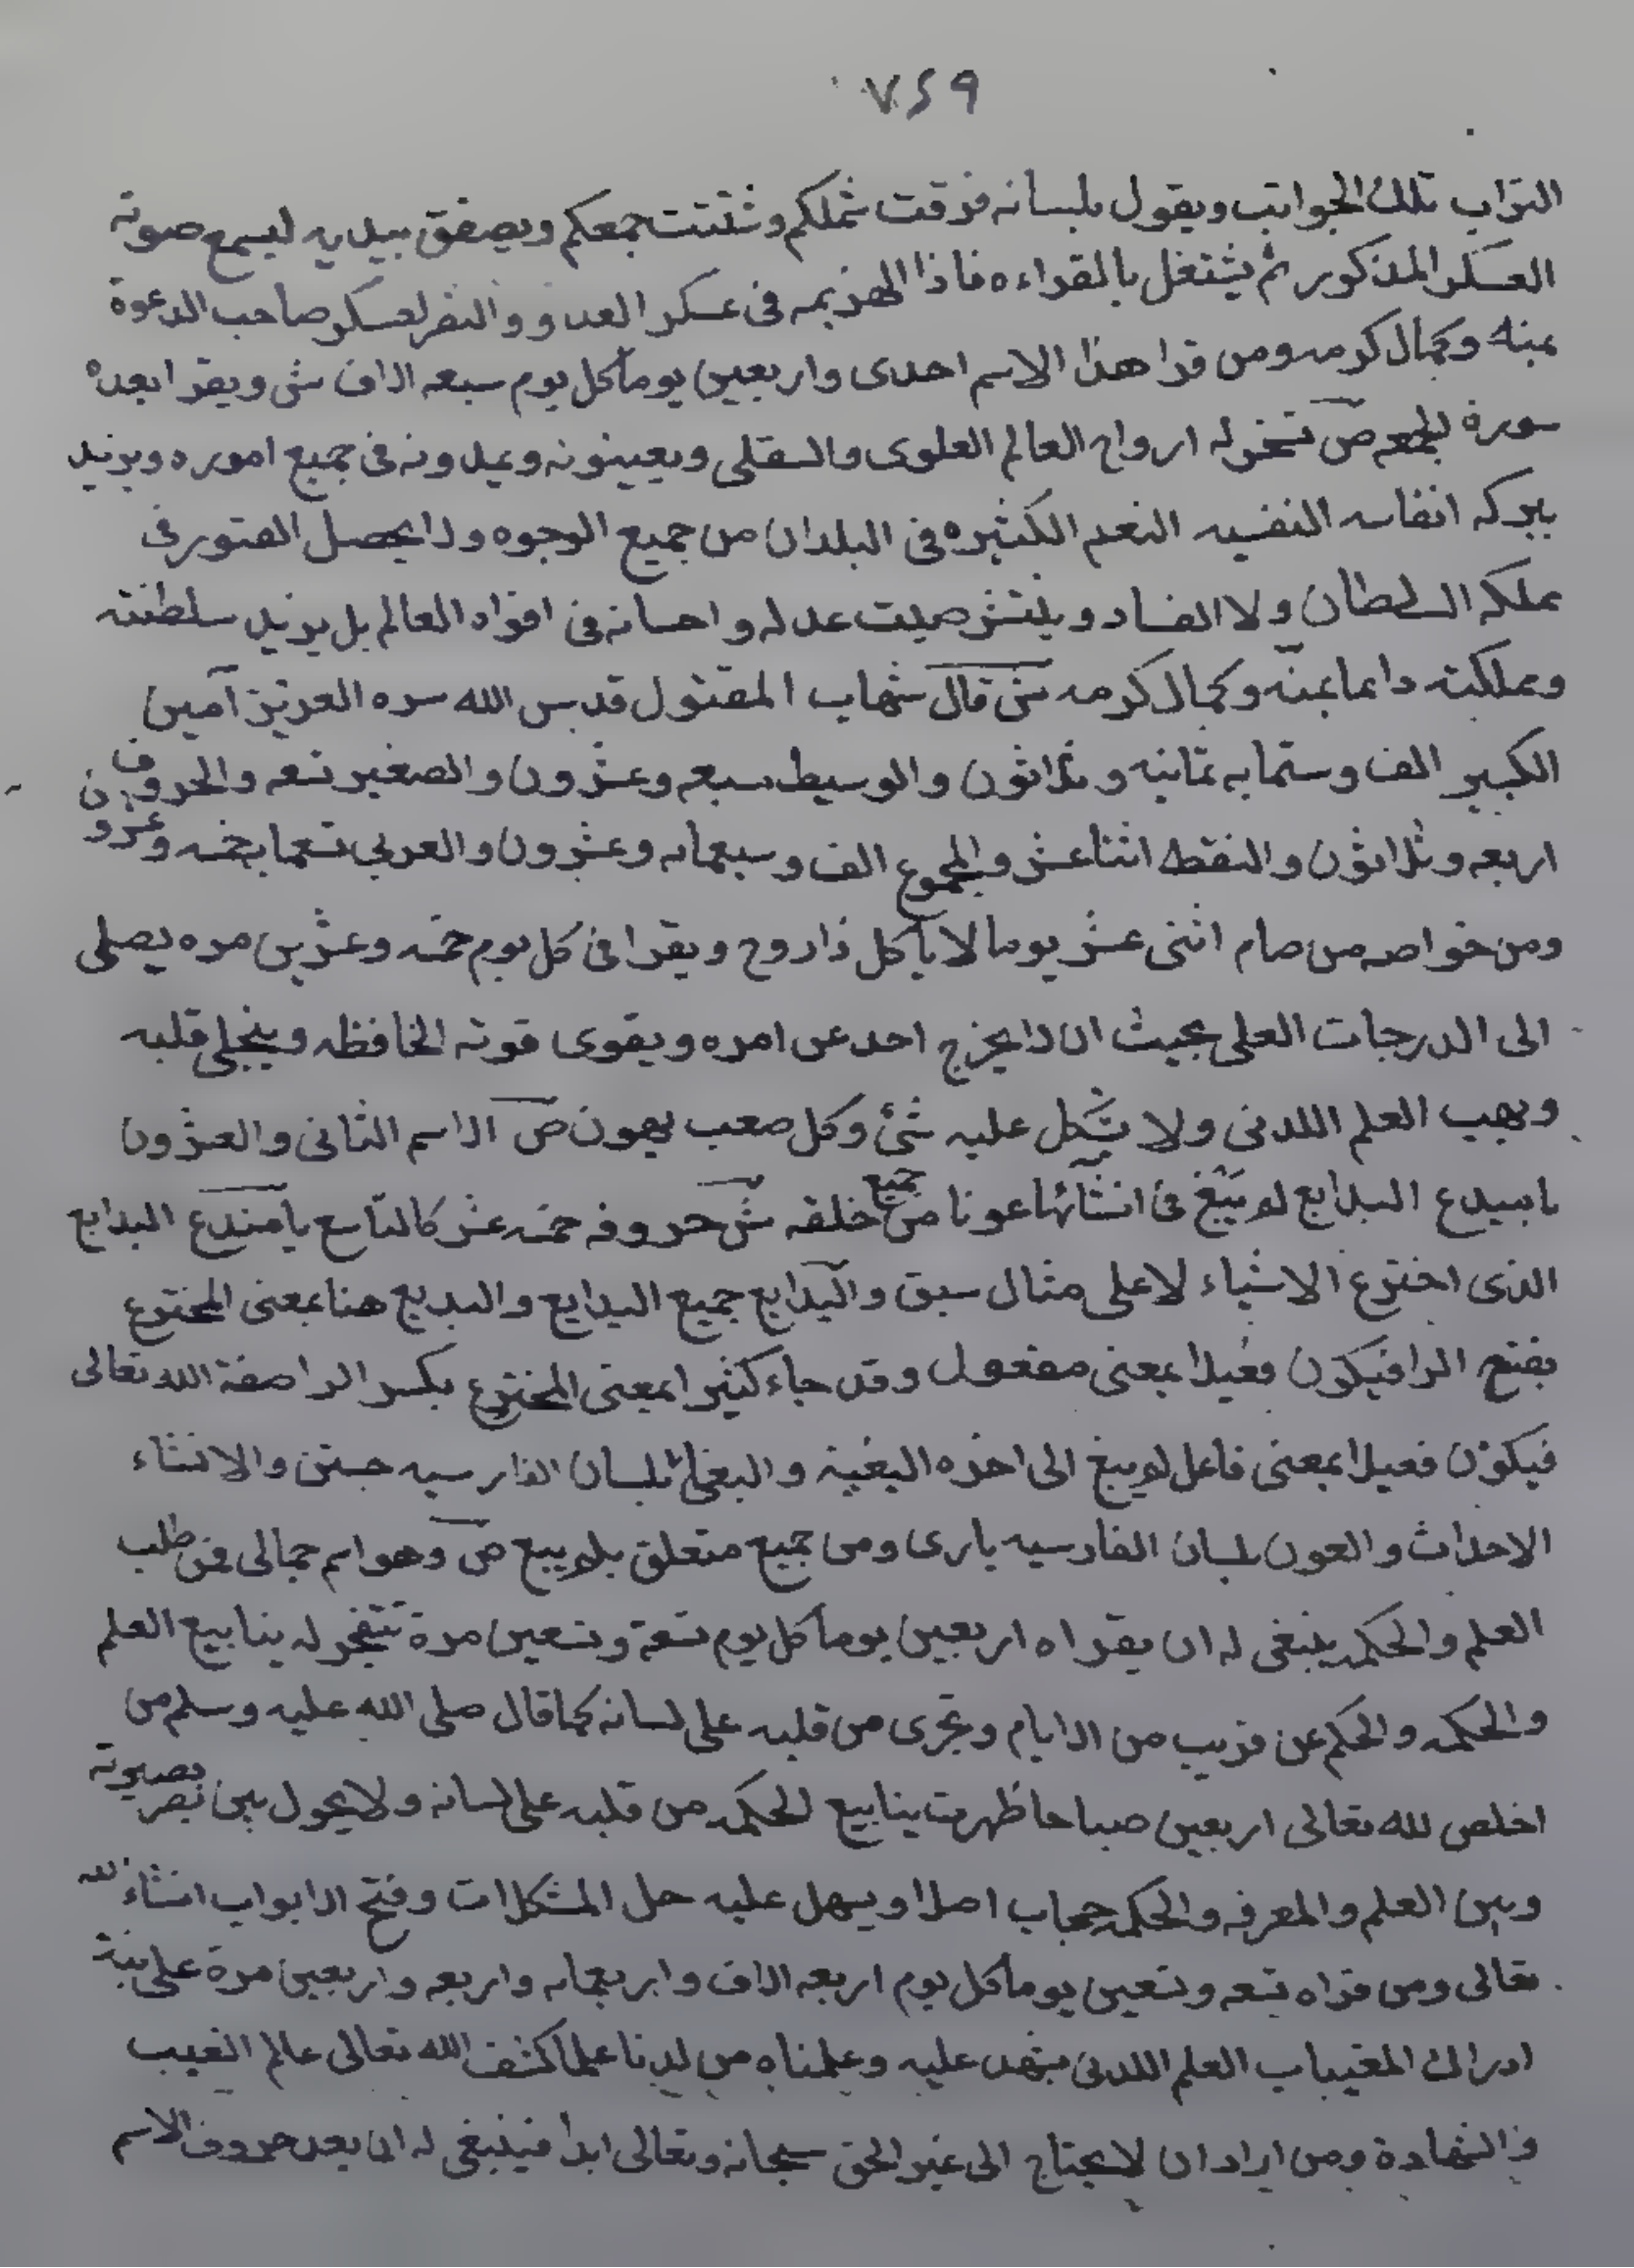 ٧٢٩
التراب تلك الجوانب ويقول بلسانه فرقت شملكم وشتتت جمعكم ويصفق بيديه ليسمع صوته
العسكر المذكور ثم يشتغل بالقراءه فاذا الهزيمه فى عسكر العدو والنصر لعسكر صاحب الدعوة
بمنه وكمال كرمه ومن قرا هذا الاسم احدى واربعين يوما كل يوم سبعه الاف شى ويقرا بعده
سورة الجمعه ص تسخر له ارواح العالم العلوى والسفلى ويعينونه ويمدونه فى جميع اموره ويزيد
ببركه انفاسه النفسيه النعم الكثيره فى البلدان من جميع الوجوه ولا يحصل الفتور فى
مملكه السلطان ولا الفساد وينتشر صيت عدله واحسانه فى افواه العالم بل يزيد سلطنته
ومملكته دايما بمنه وكمال كرمه ش قال شهاب المقتول قدس الله سره العزيز آمين
الكبير الف وستمايه ثمانيه وثلاثون والوسيط سبعه وعشرون والصغير تسعه والحروف
اربعه وثلاثون والنقطه اثنا عشر والمجموع الف وسبعمايه وعشرون والعربى تسعمايه خمسه وعشرون
ومن خواصه من صام اثنى عشر يوما لا ياكل ذا روح ويقرا فى كل يوم خمسه وعشرين مره يصلى
الى الدرجات العلى بحيث ان لا يخرج احد عن امره ويقوى قوته الحافظه وينجلى قلبه
ويهب العلم اللدنى ولا يشكل عليه شئ وكل صعب يهون ص الاسم الثانى والعشرون
يا مبدع البدايع لم يبغ فى انشائها عونا من جميع خلقه ش حروفه خمسه عشر كالتاسع يا مبتدع البدايع
الذى اخترع الاشياء لا على مثال سبق والبدايع جميع البدايع والبديع هنا بمعنى المخترع
بفتح الرا فيكون فعيلا بمعنى مفعول وقد جاء كثيرا بمعنى المخترع بكسر الرا صفة الله تعالى
فيكون فعيلا بمعنى فاعل لم يبغ الى اخره البغية والبغى بلسان الفارسيه جستن والانشاء
الاحداث والعون بلسان الفارسيه يارى ومن جميع متعلق بلم يبغ ص وهو اسم جمالى فمن طلب
العلم والحكمه ينبغى له ان يقراه اربعين يوما كل يوم تسعة وتسعين مرة تتفجر له ينابيع العلم
والحكمه والحكم عن قريب من الايام وتجرى من قلبه على لسانه كما قال صلى الله عليه وسلم من
اخلص لله تعالى اربعين صباحا ظهرت ينابيع الحكمه من قلبه على لسانه ولا يحول بين بصر بصيرته
وبين العلم والمعرفه والحكمه حجاب اصلا ويسهل عليه حل المشكلات وفتح الابواب انشاء الله
تعالى ومن قراه تسعه وتسعين يوما كل يوم اربعه الاف واربعمايه واربعه واربعين مرة على نية
ادراك المغيبات العلم اللدنى شهد عليه وعلمناه من لدنا علما كشف الله تعالى عالم الغيب
والشهادة ومن اراد ان لا يحتاج الى غير الحق سبحانه وتعالى ابدا فينبغى له ان يعد حروف الاسم